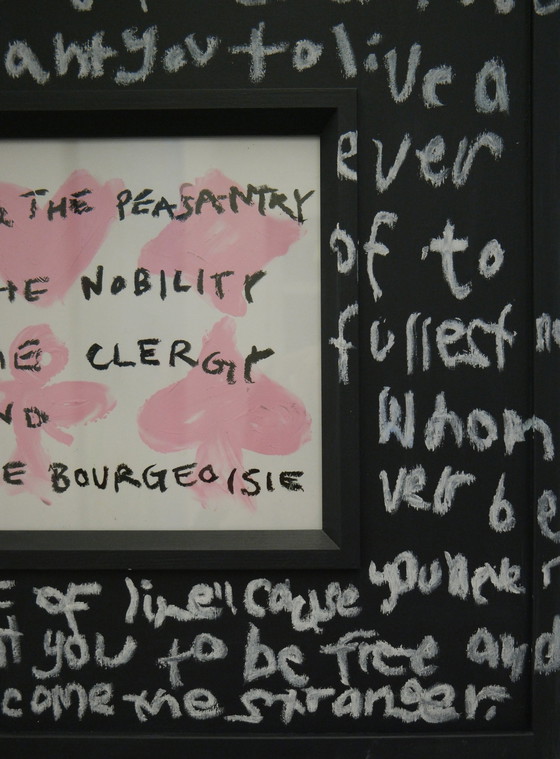 ant you to live a
ever
THE PEASANTRY
of to
HE NOBILITY
fullest
CLERGY
Whom
ND
ver be
E BOURGEOISIE
E of line" cause you never
you to be free and
come the stranger.